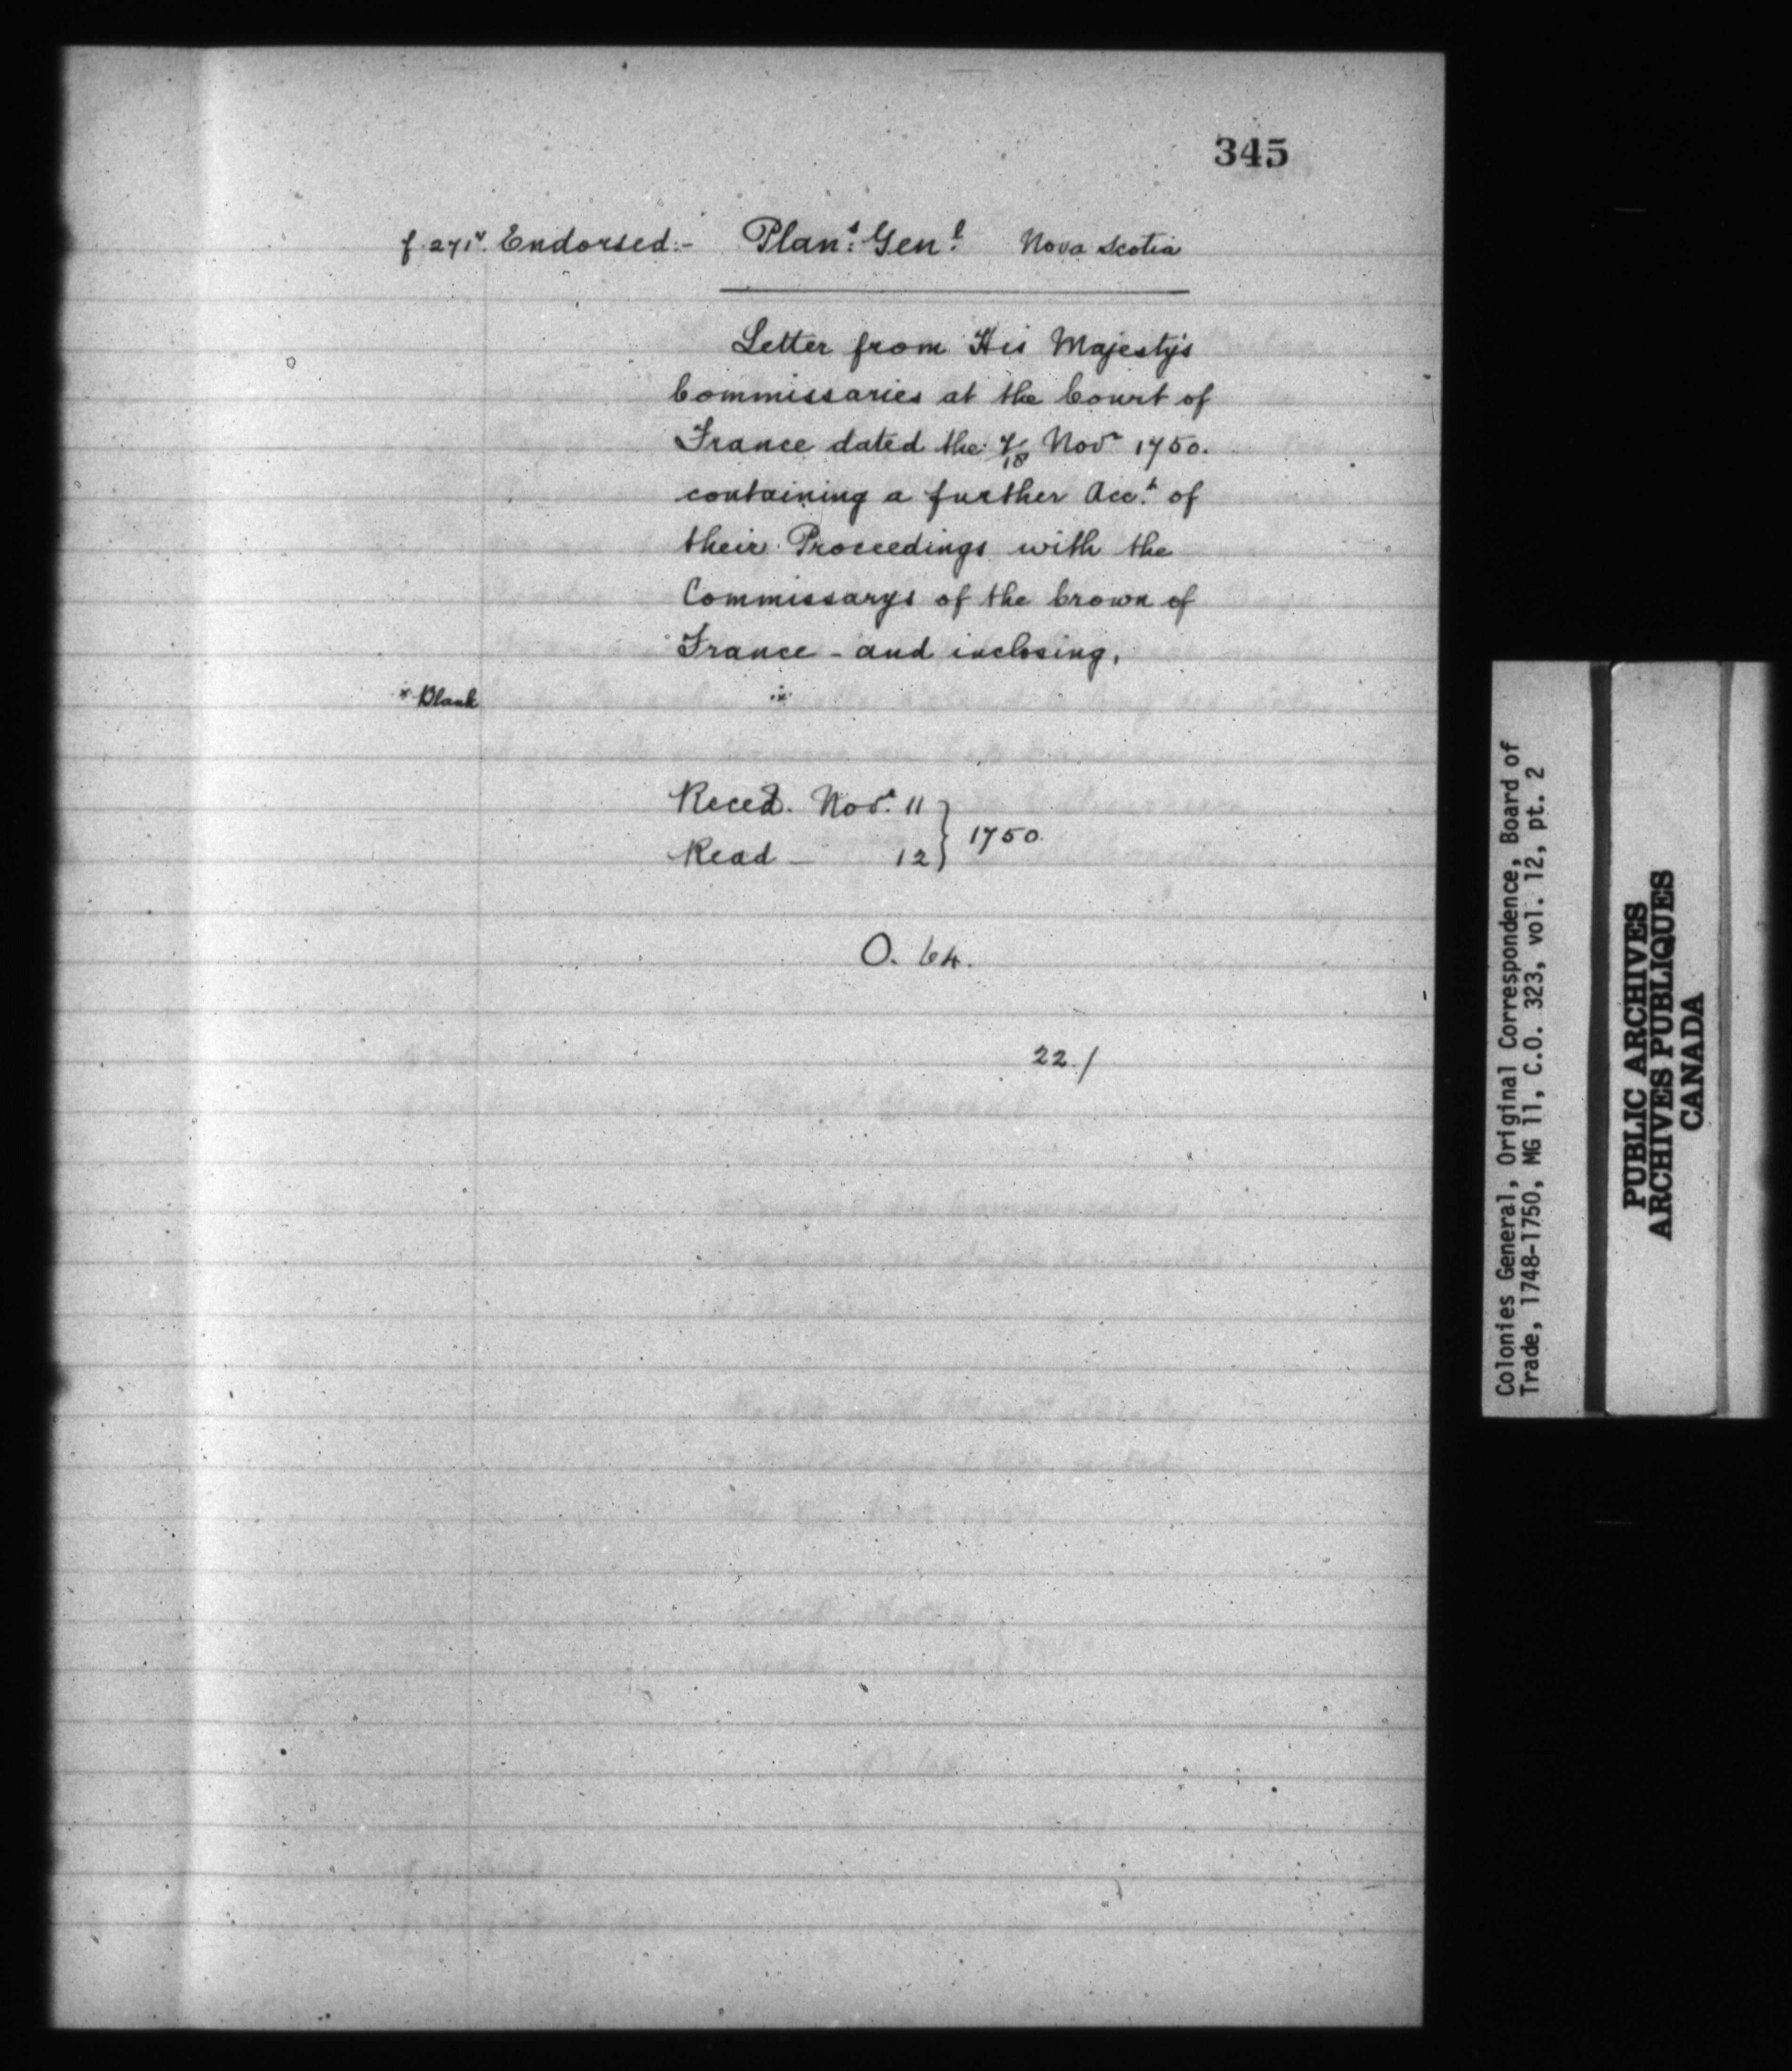 345
f. 271v. Endorsed:- Plans: Genl. Nova Scotia
Letter from His Majesty's
Commissaries at the Court of
France dated the 7/18 Novr 1750.
containing a further Acct. of
their Proceedings with the
Commissarys of the Crown of
France - and inclosing,
* Blank *
Reced. Novr. 11 } 1750.
Read — 12 }
O. 64.
22./
Colonies General, Original Correspondence, Board of
Trade, 1748-1750, MG 11, C.O. 323, vol. 12, pt. 2
PUBLIC ARCHIVES
ARCHIVES PUBLIQUES
CANADA